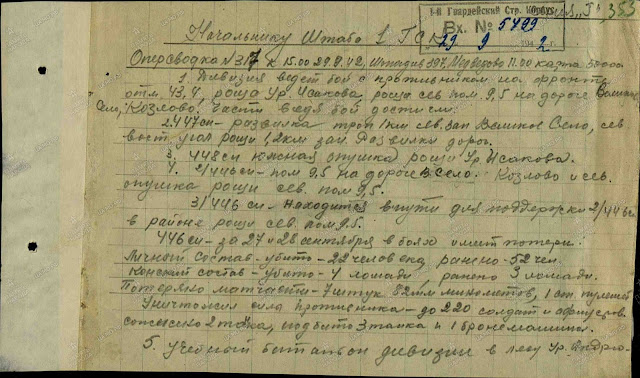 1-й Гвардейский Стр. Корпус
Вх. № 5499
29 9 1942 г.
353
Начальнику Штаба 1 ГСК
Оперсводка N317 к 15.00 29.9.42, Штадив 397, 11.00 карта 50000
1. Дивизия ведет бой с противником на фронте
отм. 43,4, роща Ур. Исакова, роща сев. пом. 9,5 на дороге Великое
Село, Козлово, части ведя бой достигли:
2. 447 сп - развилка троп 1 км сев. зап Великое Село, сев
вост. угол рощи 1,2 км зап. Развилки дорог.
3. 448 сп южная опушка рощи Ур. Исакова.
4. 2/446 сп - пом 9.5 на дороге В. Село. Козлово и сев.
опушка рощи сев. пом 9,5.
3/446 сп - находится в пути для поддержки 2/446 сп
в районе рощи сев. пом 9.5.
446 сп - за 27 и 28 сентября в боях имеет потери:
Личный состав - убито - 22 человека, ранено - 52 чел.
Конский состав - убито - 4 лошади, ранено 3 лошади.
Потеряно матчасти - 7 штук 82 мм минометов, 1 ст. пулемет
Уничтожил сила противника - до 220 солдат и офицеров
сожжено 2 танка, подбито 3 танка и 1 бронемашина.
5. Учебный батальон дивизии в лесу Ур.